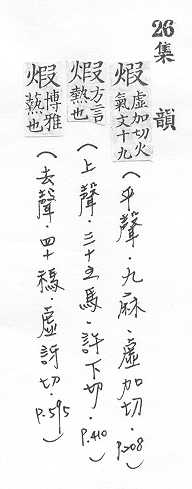 26
集韻
煆 虛加切火氣文十九 (平聲．九麻．虛加切．P.208)
煆 方言熱也 (上聲．三十五馬．許下切．P.410)
煆 博雅熱也 (去聲．四十禡．虛訝切．P.595)